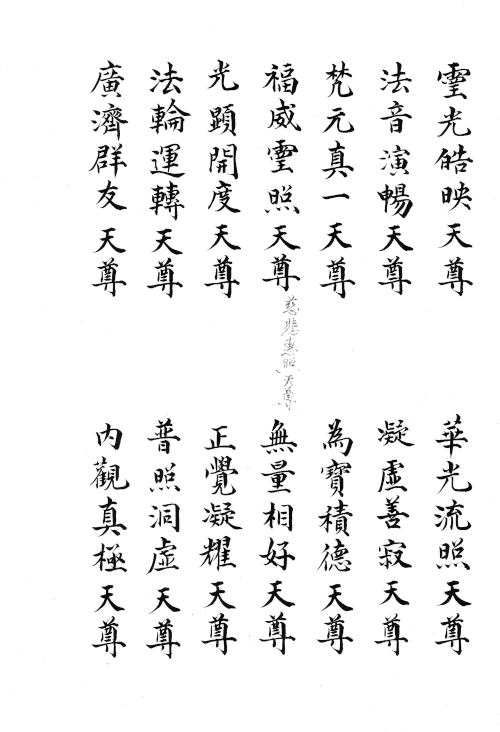 霊光皓映天尊
法音演暢天尊
梵元真一天尊
福威霊照天尊
光顕開度天尊
法輪運轉天尊
廣濟群友天尊
慈悲惠照天尊
華光流照天尊
凝虛善寂天尊
為寶積德天尊
無量相好天尊
正覺凝耀天尊
普照洞虛天尊
內觀真極天尊